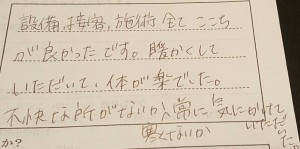 設備、接客、施術 全て ここち
が良かったです。暖かくして
いただいて、体が楽でした。
不快な所がないか、常に気にかけて
いただいた
寒くないか
か?